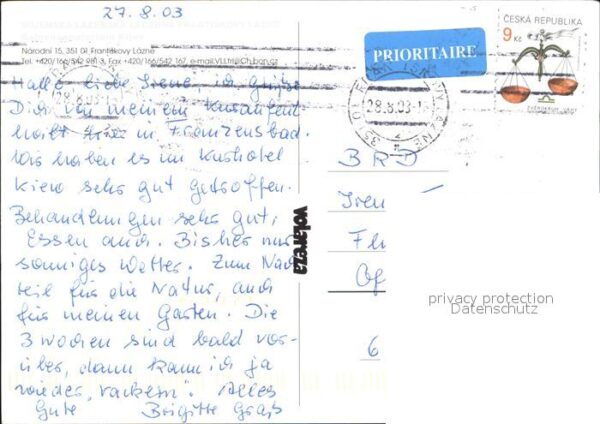 27.8.03
Národní 15, 351 01 Františkovy Lázně
Tel. +420/166/542 981-3, Fax +420/166/542 167, e-mail:
Hallo liebe Irene, ich grüße
Dich von meinem Kuraufent
halt in Franzensbad.
Wir haben es im Kurhotel
Kiew sehr gut getroffen.
Behandlungen sehr gut,
Essen auch. Bisher nur
sonniges Wetter. Zum Nach
teil für die Natur, auch
für meinen Garten. Die
3 Wochen sind bald vor-
über, dann kann ich ja
wieder "rackern". Alles
Gute Brigitte Graß
PRIORITAIRE
ČESKÁ REPUBLIKA
9 Kč
28.8.03
351 01
BRD
Iren
Fl
6
privacy protection
Datenschutz